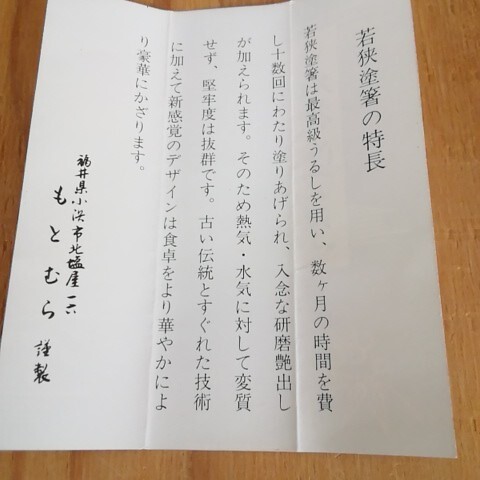 若狭塗箸の特長
若狭塗箸は最高級うるしを用い、数ヶ月の時間を費
し十数回にわたり塗りあげられ、入念な研磨艶出し
が加えられます。そのため熱気・水気に対して変質
せず、堅牢度は抜群です。古い伝統とすぐれた技術
に加えて新感覚のデザインは食卓をより華やかによ
り豪華にかざります。
福井県小浜市北塩屋一六
もとむら謹製